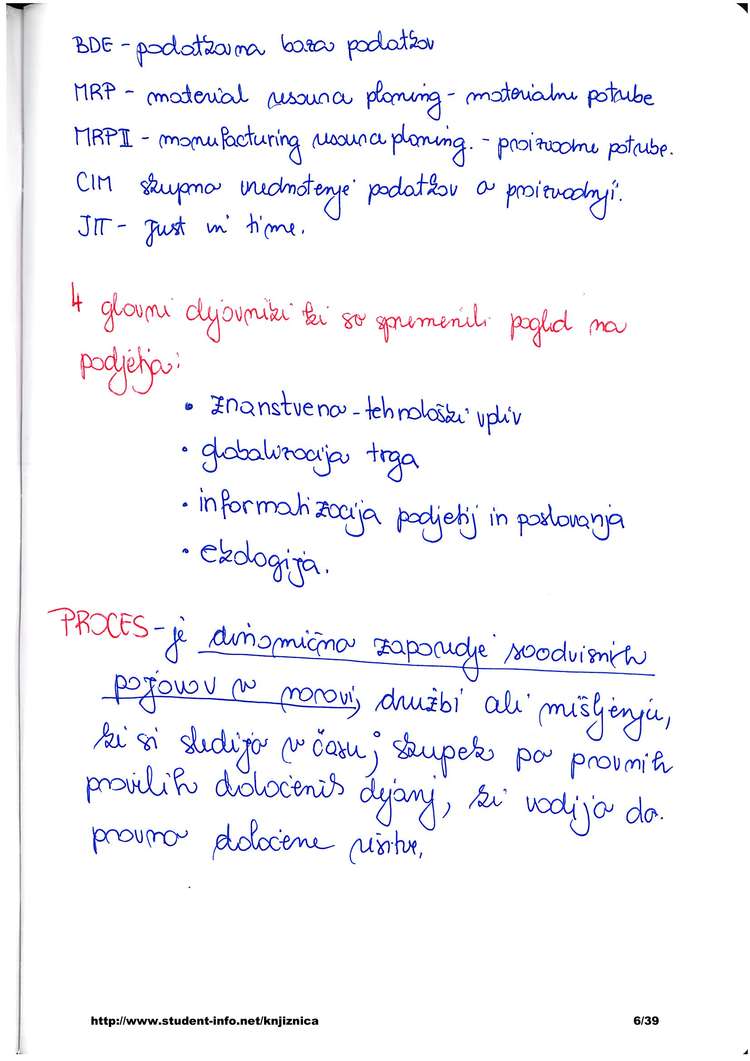 BDE - podatkovna baza podatkov
MRP - material resource planing - materialne potrebe
MRP II - manufacturing resource planing. - proizvodne potrebe.
CIM skupno vrednotenje podatkov o proizvodnji.
JIT - Just in time.
4 glavni dejavniki ki so spremenili pogled na
podjetja:
• znanstveno - tehnološki vpliv
• globalizacija trga
• informatizacija podjetij in poslovanja
• ekologija.
PROCES - je dinamično zaporedje soodvisnih
pojavov v naravi, družbi ali mišljenju,
ki si sledijo v času; skupek po pravnih
pravilih določenih dejanj, ki vodijo do
pravno določene rešitve,
http://www.student-info.net/knjiznica
6/39